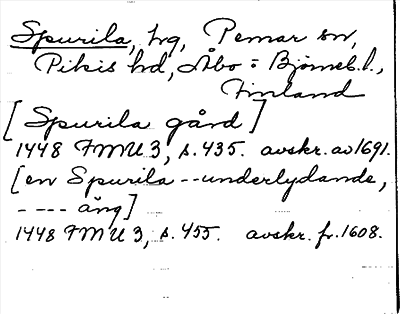 Spurila, hg, Pemar sn,
Pikis hd, Åbo = Björneb. l.,
Finland
[Spurila gård]
1448 FMU 3, s. 435. avskr. av 1691.
[en Spurila -- underlydande,
---- äng]
1448 FMU 3, s. 455. avskr. fr. 1608.